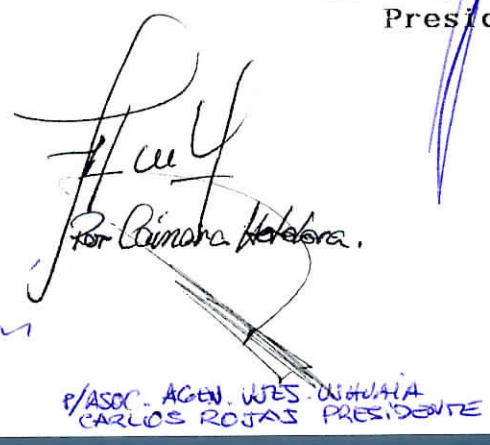 Presid
Por Cámara Hotelera.
P/ASOC. AGEN. VJES. USHUAIA
CARLOS ROJAS PRESIDENTE